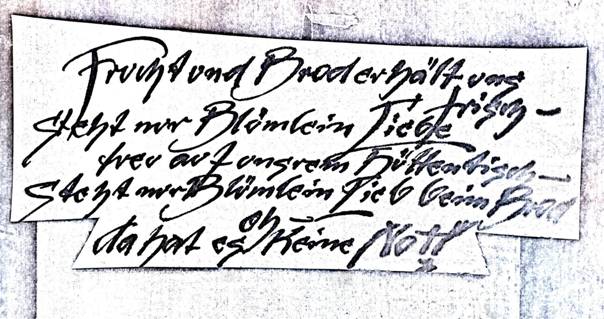 Frucht und Brod erhält uns
frisch –
steht nur Blömlein Liebe
frey auf unsrem Hüttentisch –
steht nur Blömlein Lieb beim Brod
oh
da hat es keine Noth